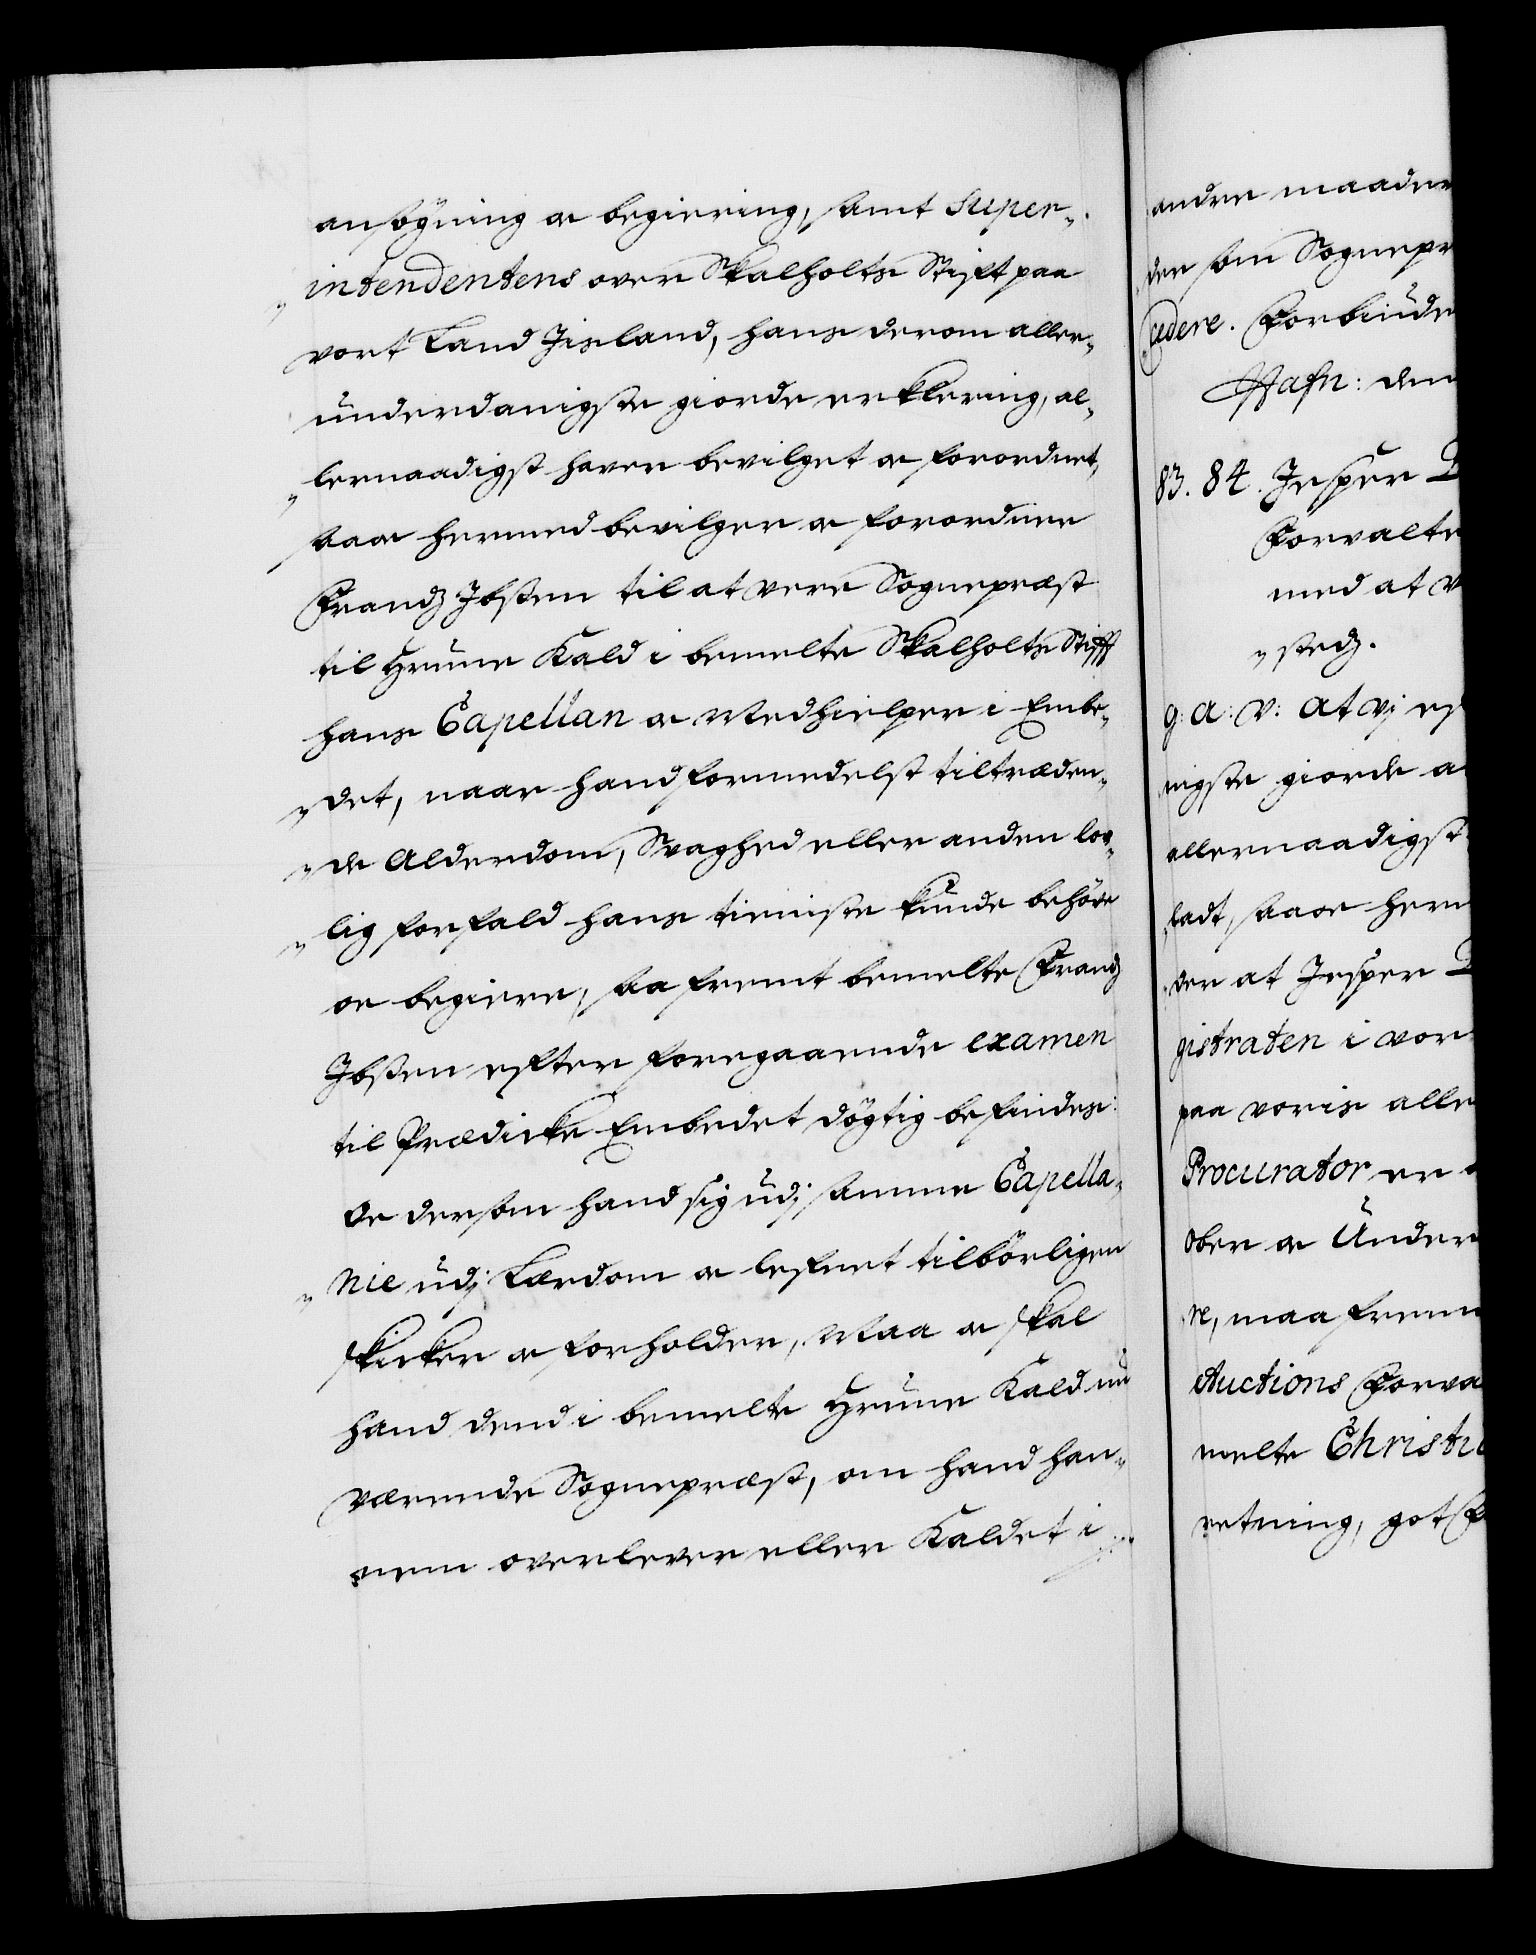 ansögning og begiering, samt Super-
intendentens over Skalholts Stift paa
vort Land Jisland, hans derom aller-
underdanigste giorde erklering, al-
lernaadigst haver bevilget og forordnet,
saa og hermed bevilger og forordner
Frandz Jbsen til at vere Sognepræst
til Hrune Kald i bemelte Skalholts Stifft
hans Capellan og Medhielper i Embe-
det, naar hand formedelst tiltræden-
de Alderdom, Svaghed eller anden lov-
lig forfald hans tieniste kunde behöve
og begiere, saafremt bemelte Frandz
Jbsen efter foregaaende examen
til Prædicke Embedet dögtig befindes:
Og dersom hand sig udj samme Capella-
nie udj Lærdom og lefnet tilbörligen
skicker og forholder, Maa og skal
hand dend i bemelte Hrune Kald nu
værende Sognepræst, om hand han-
nem overlever eller Kaldet i
andre maader
der som Sognepr
cedere. Forbiude
Hafn: den
83. 84. Jesper
Forvalte
med at v
sted.
g: a: v: at vj ef
nigste giorde a
allernaadigst
ladt, saa og herm
der at Jesper
gistraten i vor
paa voris alle
Procurator er
Ober og Under
re, maa frem
Auctions Forva
melte Christi
retning, got